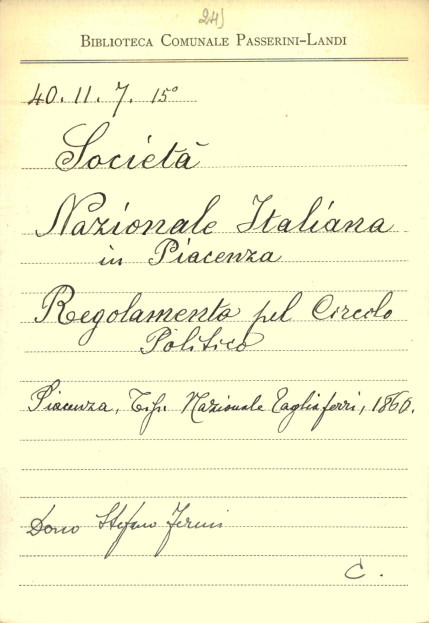 24)
BIBLIOTECA COMUNALE PASSERINI-LANDI
40. 11. 7. 15°
Società
Nazionale Italiana
in Piacenza
Regolamento pel Circolo
Politico
Piacenza, Tip. Nazionale Tagliaferri, 1860.
Dono Stefano Fermi
C.